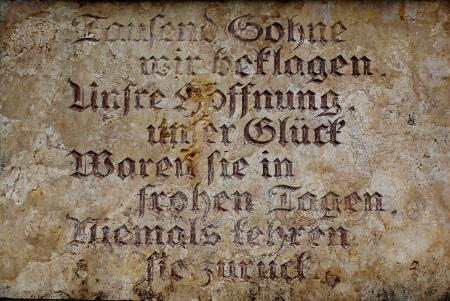 Tausend Söhne
wir beklagen,
Unsre Hoffnung,
unser Glück
Waren sie in
frohen Tagen,
Niemals kehren
sie zurück